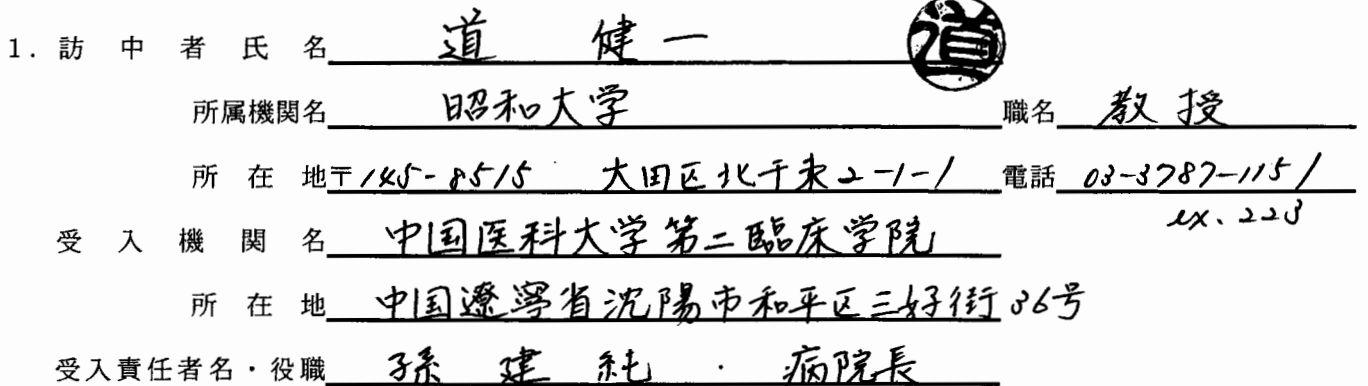 1. 訪中者氏名 道 健一 道
所属機関名 昭和大学 職名 教授
所在地 〒145-8515 大田区北千束2-1-1 電話 03-3787-1151
ex. 223
受入機関名 中国医科大学第二臨床学院
所在地 中国遼寧省沈陽市和平区三好街36号
受入責任者名・役職 孫 建純 ・ 病院長